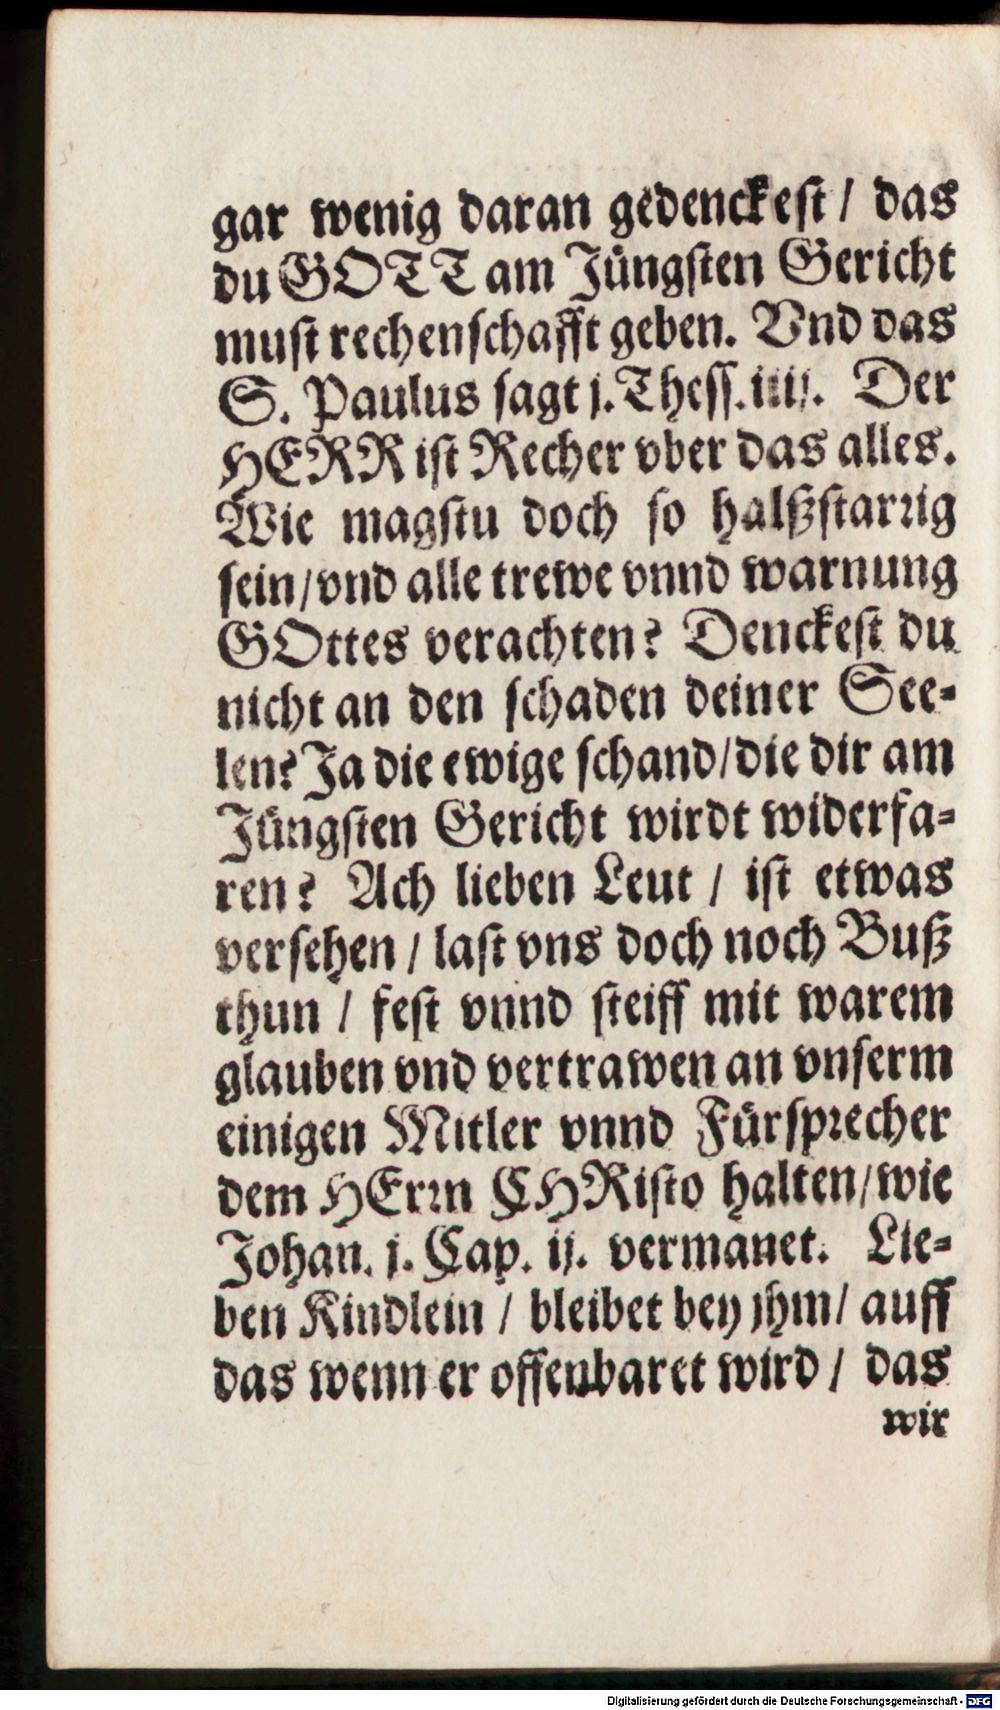 gar wenig daran gedenckest / das
du GOTT am Jüngsten Gericht
must rechenschafft geben. Vnd das
S. Paulus sagt j. Thess. iiij. Der
HERR ist Recher vber das alles.
Wie magstu doch so halßstarrig
sein / vnd alle trewe vnnd warnung
GOttes verachten? Denckest du
nicht an den schaden deiner See-
len? Ja die ewige schand / die dir am
Jüngsten Gericht wirdt widerfa-
ren? Ach lieben Leut / ist etwas
versehen / last vns doch noch Buß
thun / fest vnnd steiff mit warem
glauben vnd vertrawen an vnserm
einigen Mitler vnnd Fürsprecher
dem HErrn CHRisto halten / wie
Johan. j. Cap. ij. vermanet. Lie-
ben Kindlein / bleibet bey jhm / auff
das wenn er offenbaret wird / das
wir
Digitalisierung gefördert durch die Deutsche Forschungsgemeinschaft - DFG